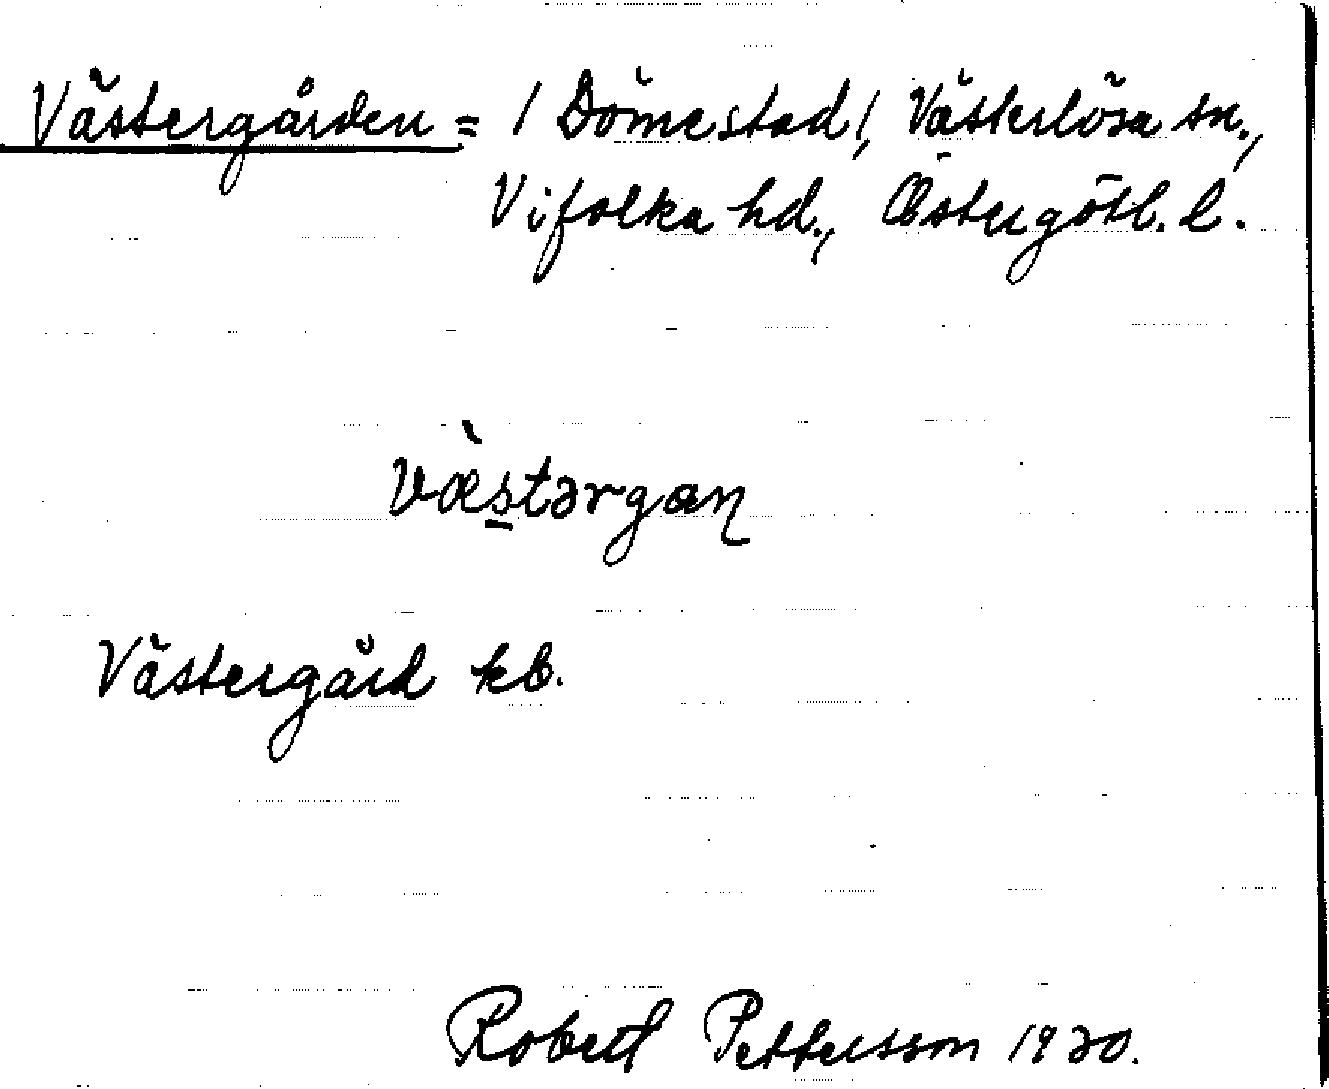 Västergården = / Dömestad /, Västerlösa sn.,
Vifolka hd., Östergötl. l.
væ̀stərgan
Västergård kb.
Robert Pettersson 1930.